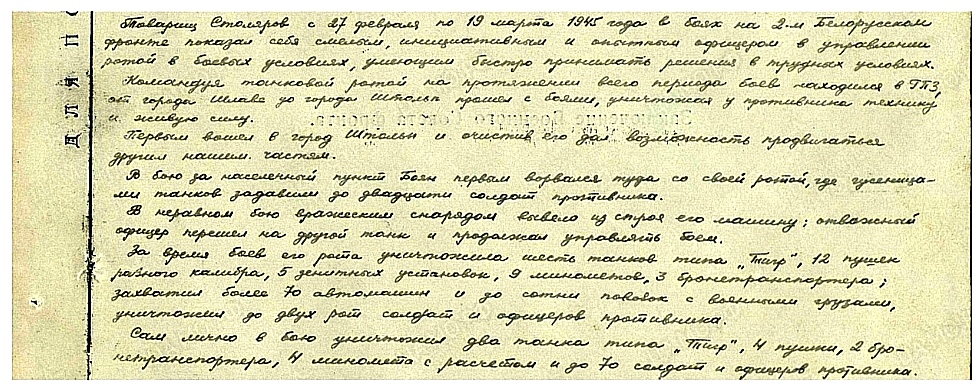 Товарищ Столяров с 27 февраля по 19 марта 1945 года в боях на 2-м Белорусском
фронте показал себя смелым, инициативным и опытным офицером в управлении
ротой в боевых условиях, умеющим быстро принимать решения в трудных условиях.
Командуя танковой ротой на протяжении всего периода боев находился в ГПЗ,
от города Шлаве до города Штольп прошел с боями, уничтожая у противника технику
и живую силу.
Заключение Военного Совета фронта.
Первым вошел в город Штольп и очистив его дал возможность продвигаться
другим нашим частям.
В бою за населенный пункт Боян первым ворвался туда со своей ротой, где гусеница-
ми танков задавили до двадцати солдат противника.
В неравном бою вражеским снарядом вывело из строя его машину; отважный
офицер перешел на другой танк и продолжал управлять боем.
За время боев его рота уничтожила шесть танков типа „Тигр", 12 пушек
разного калибра, 5 зенитных установок, 9 минометов, 3 бронетранспортера;
захватил более 70 автомашин и до сотни повозок с военными грузами,
уничтожил до двух рот солдат и офицеров противника.
Сам лично в бою уничтожил два танка типа „Тигр", 4 пушки, 2 бро-
нетранспортера, 4 миномета с расчетом и до 70 солдат и офицеров противника.
ДЛЯ П